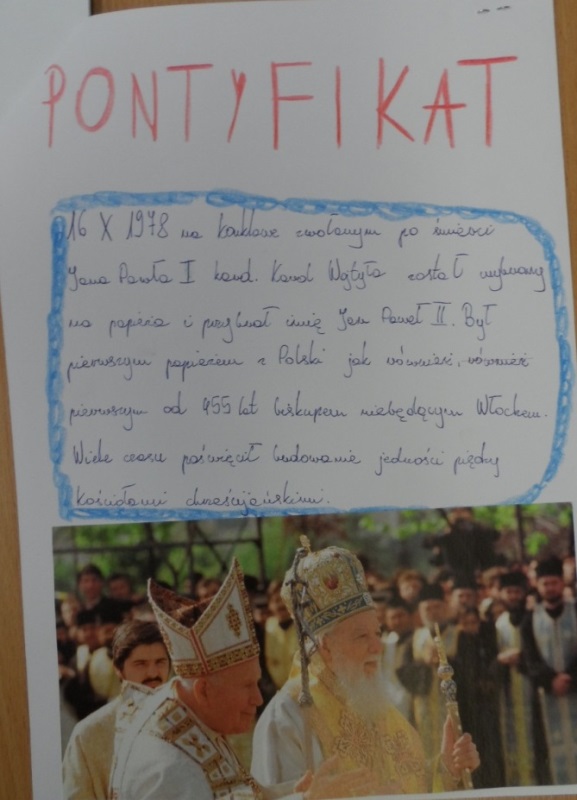 PONTYFIKAT
16 X 1978 na konklawe zwołanym po śmierci
Jana Pawła I kard. Karol Wojtyła został wybrany
na papieża i przybrał imię Jan Paweł II. Był
pierwszym papieżem z Polski jak również, również
pierwszym od 455 lat biskupem niebędącym Włochem.
Wiele czasu poświęcił budowanie jedności między
kościołami chrześcijańskimi.